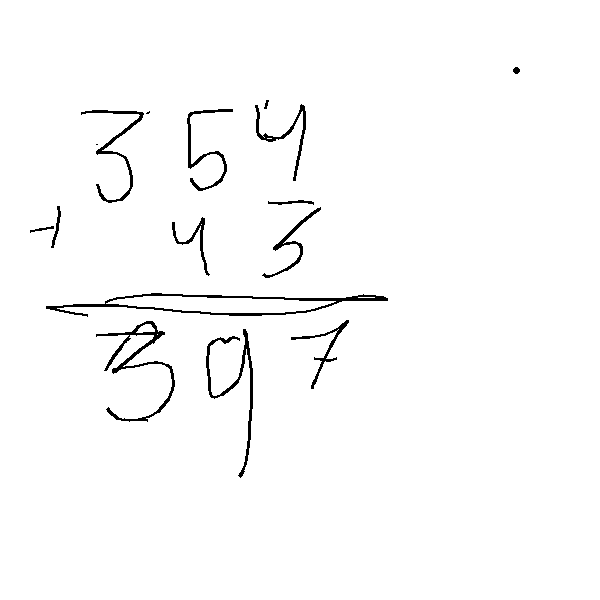 354
+ 43
397